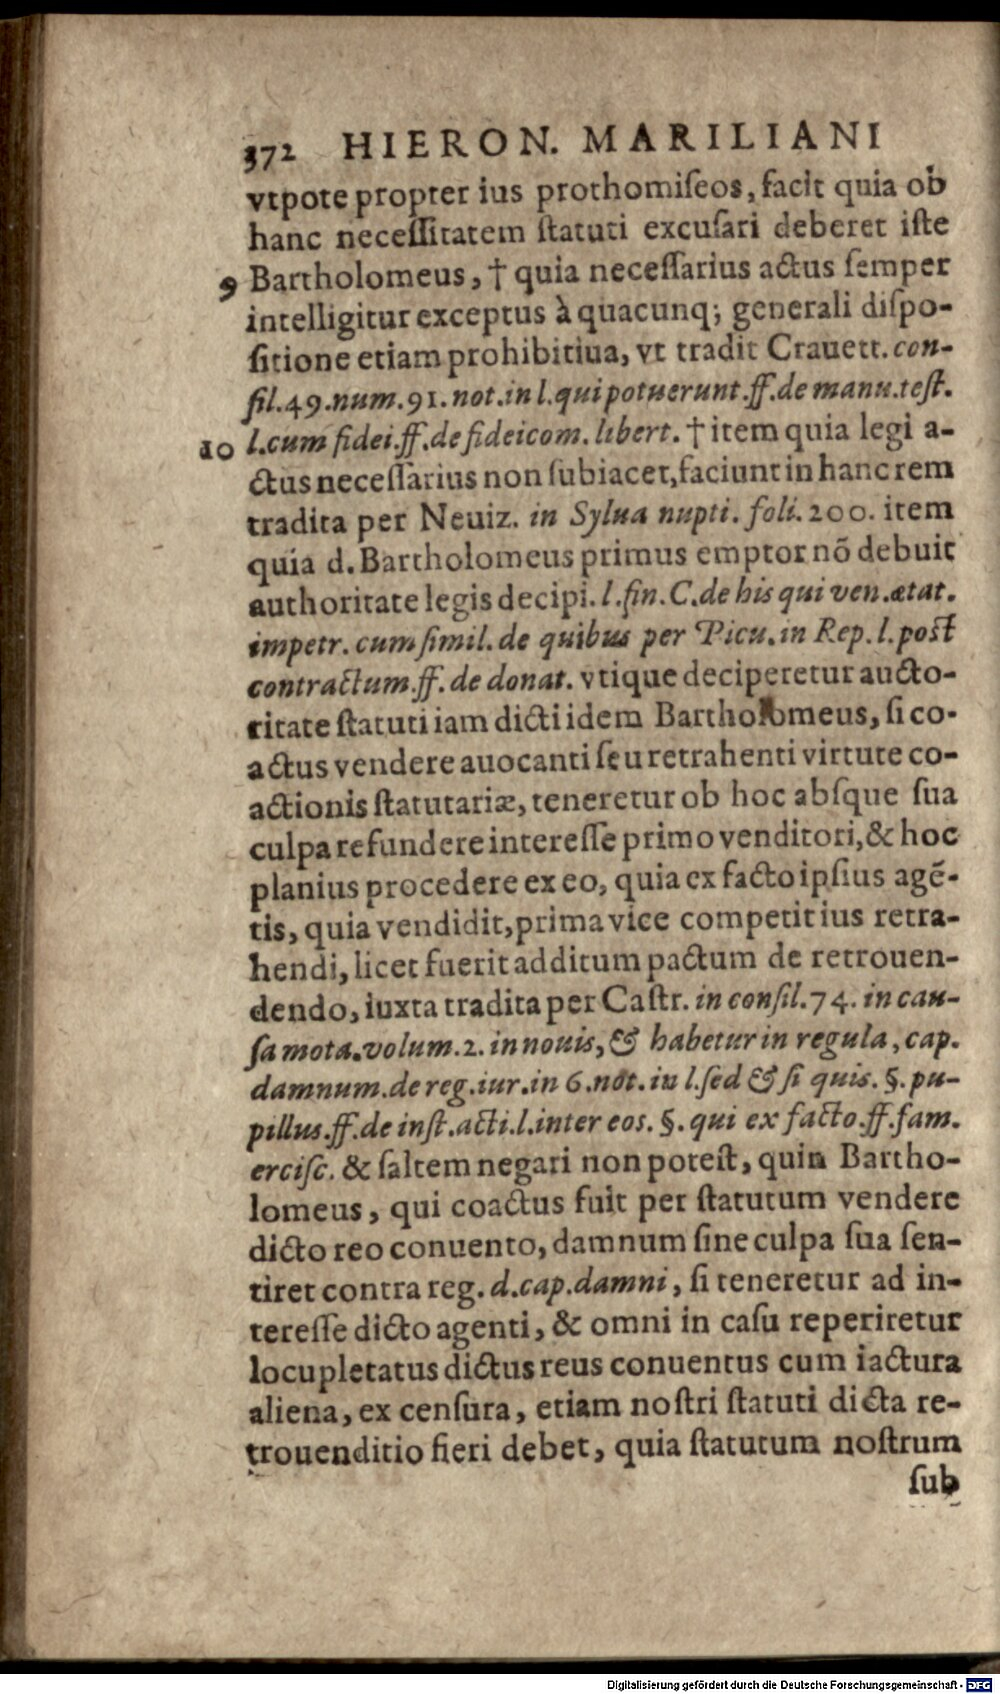 372 HIERON. MARILIANI
vtpote propter ius prothomiſeos, facit quia ob
hanc neceſſitatem ſtatuti excuſari deberet iſte
9 Bartholomeus, † quia neceſſarius actus ſemper
intelligitur exceptus à quacunq; generali diſpo-
ſitione etiam prohibitiua, vt tradit Crauett. con-
ſil. 49. num. 91. not. in l. qui potuerunt. ff. de manu. teſt.
10 l. cum fidei. ff. de fideicom. libert. † item quia legi a-
ctus neceſſarius non ſubiacet, faciunt in hanc rem
tradita per Neuiz. in Sylua nupti. foli. 200. item
quia d. Bartholomeus primus emptor nõ debuit
authoritate legis decipi. l. fin. C. de his qui ven. ætat.
impetr. cum ſimil. de quibus per Picu. in Rep. l. poſt
contractum. ff. de donat. vtique deciperetur aucto-
ritate ſtatuti iam dicti idem Bartholomeus, ſi co-
actus vendere auocanti ſeu retrahenti virtute co-
actionis ſtatutariæ, teneretur ob hoc abſque ſua
culpa refundere intereſſe primo venditori, & hoc
planius procedere ex eo, quia ex facto ipſius agẽ-
tis, quia vendidit, prima vice competit ius retra-
hendi, licet fuerit additum pactum de retrouen-
dendo, iuxta tradita per Caſtr. in conſil. 74. in cau-
ſa mota. volum. 2. in nouis, & habetur in regula, cap.
damnum. de reg. iur. in 6. not. in l. ſed & ſi quis. §. pu-
pillus. ff. de inſt. acti. l. inter eos. §. qui ex facto. ff. fam.
erciſc. & ſaltem negari non poteſt, quin Bartho-
lomeus, qui coactus fuit per ſtatutum vendere
dicto reo conuento, damnum ſine culpa ſua ſen-
tiret contra reg. d. cap. damni, ſi teneretur ad in-
tereſſe dicto agenti, & omni in caſu reperiretur
locupletatus dictus reus conuentus cum iactura
aliena, ex cenſura, etiam noſtri ſtatuti dicta re-
trouenditio fieri debet, quia ſtatutum noſtrum
ſub
Digitalisierung gefördert durch die Deutsche Forschungsgemeinschaft - DFG